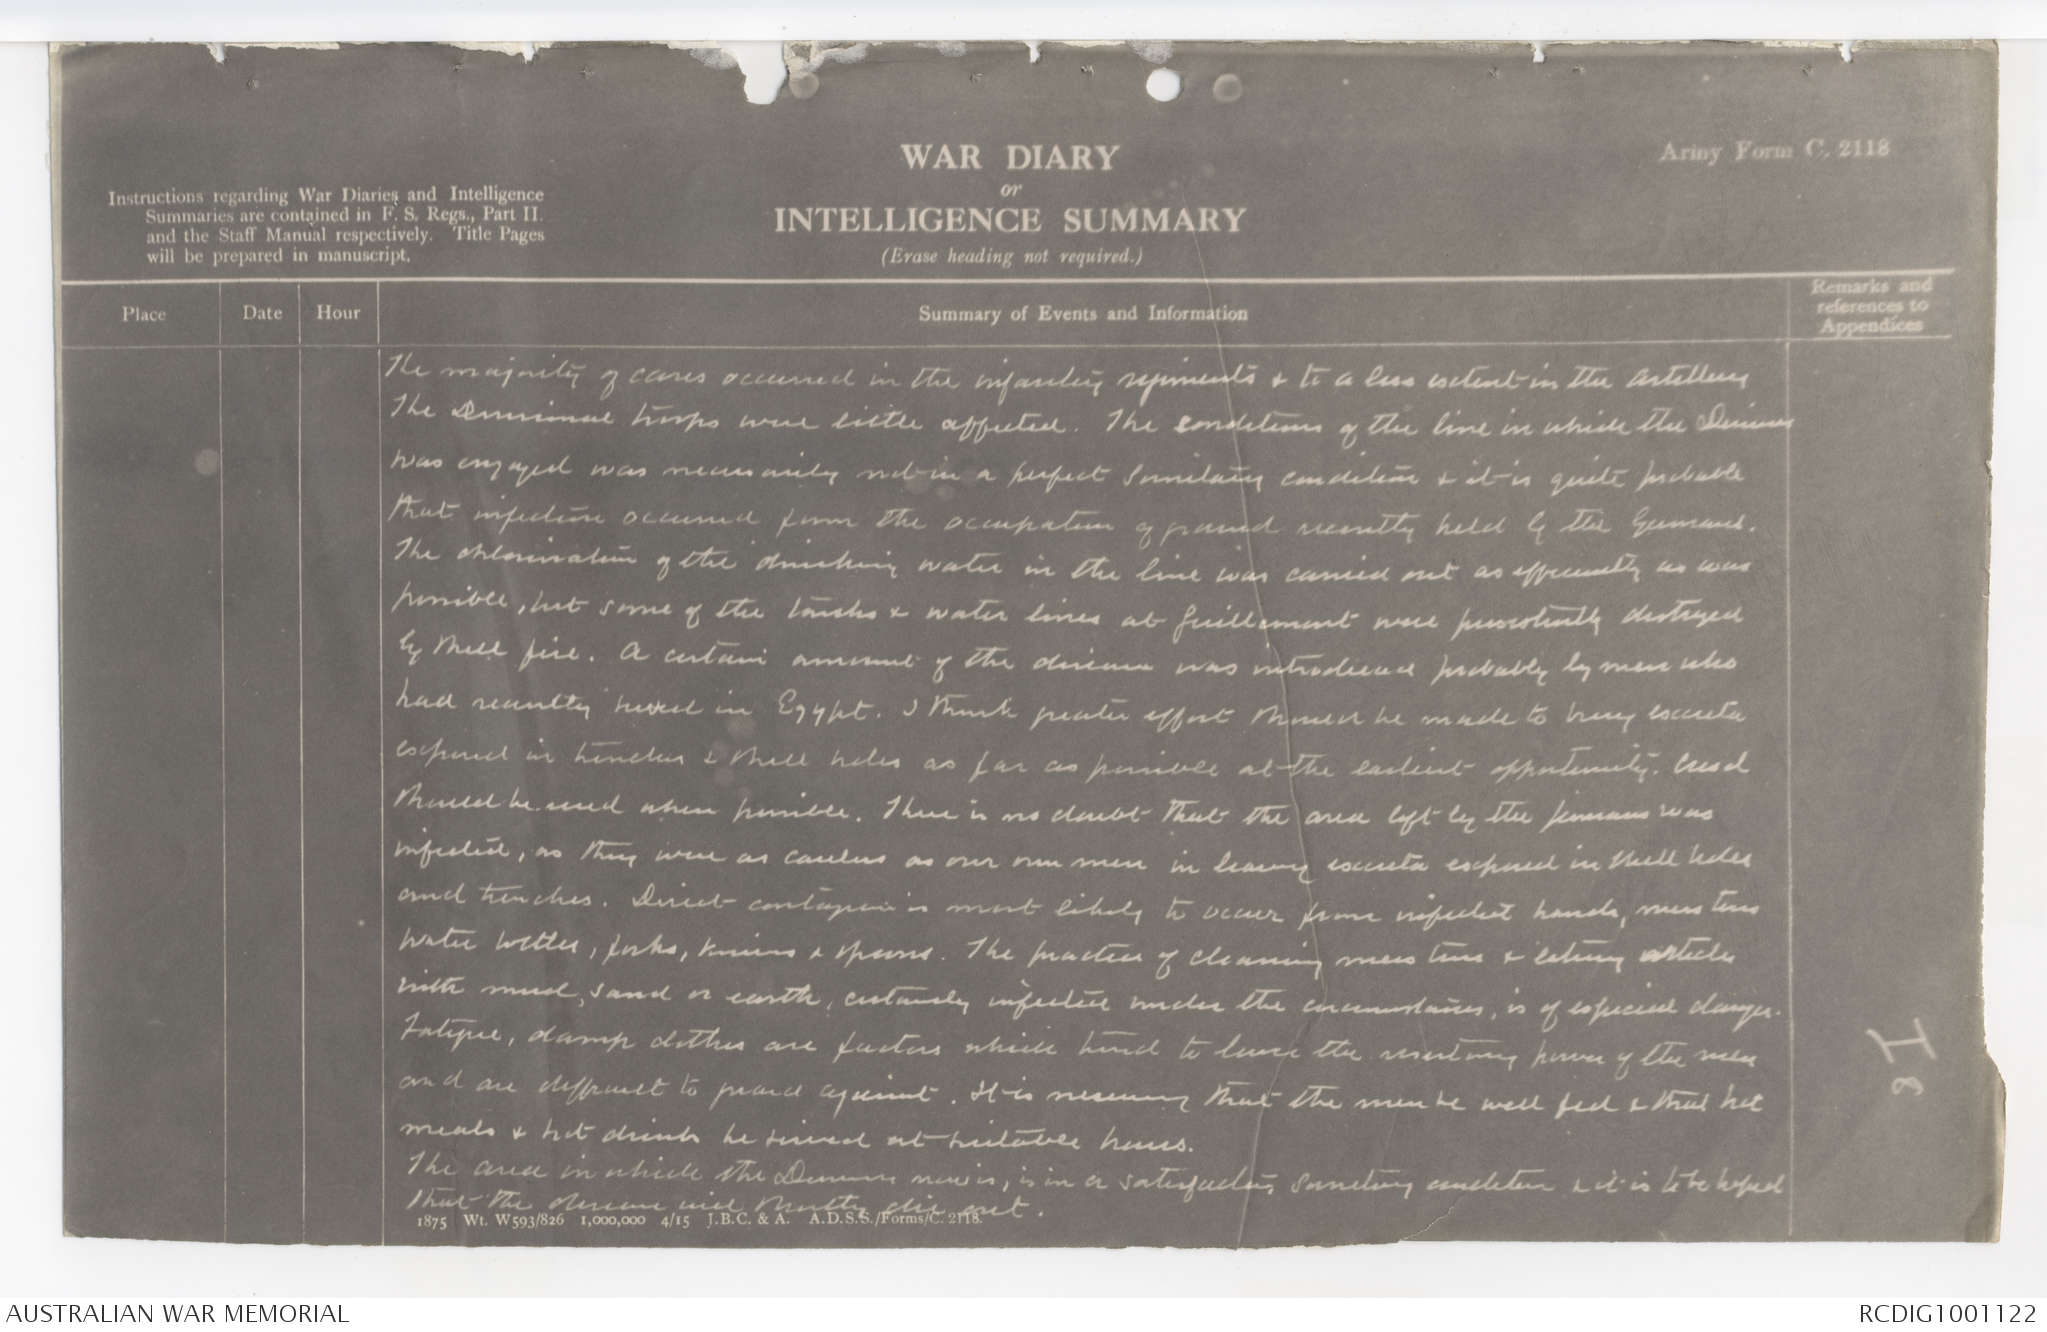 WAR DIARY
or
INTELLIGENCE SUMMARY
(Erase heading not required.)
Army Form C. 2118
Instructions regarding War Diaries and Intelligence
Summaries are contained in F. S. Regs., Part II.
and the Staff Manual respectively. Title Pages
will be prepared in manuscript.
Place
Date
Hour
Summary of Events and Information
Remarks and
references to
Appendices
The majority of cases occurred in the infantry regiments & to a less extent in the Artillery
The Divisional troops were little affected. The conditions of the line in which the Division
was engaged was necessarily not in a perfect Sanitary condition & it is quite probable
that infection occurred from the occupation of ground recently held by the Germans.
The chlorination of the drinking water in the line was carried out as efficiently as was
possible, but some of the tanks & water lines at Guillemont were persistently destroyed
by shell fire. A certain amount of the disease was introduced probably by men who
had recently served in Egypt. I think greater effort should be made to bury excreta
exposed in trenches & shell holes as far as possible at the earliest opportunity. Cresol
should be used when possible. There is no doubt that the area left by the Germans was
infected, as they were as careless as our own men in leaving excreta exposed in shell holes
and trenches. Direct contagion is most likely to occur from infected hands, mess tins
water bottles, forks, knives & spoons. The practice of cleaning mess tins & eating articles
with mud, sand or earth, certainly infected under the circumstances, is of especial danger.
Fatigue, damp clothes are factors which tend to lower the resisting power of the men
and are difficult to guard against. It is necessary that the men be well fed & that hot
meals & hot drinks be served at suitable hours.
The area in which the Division now is, is in a satisfactory Sanitary condition & it is to be hoped
that the disease will shortly die out.
1875 Wt. W593/826 1,000,000 4/15 J.B.C. & A. A.D.S.S./Forms/C. 2118.
AUSTRALIAN WAR MEMORIAL
RCDIG1001122